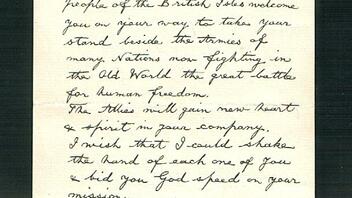 people of the British Isles welcome
you on your way to take your
stand beside the Armies of
many Nations now fighting in
the Old World the great battle
for human freedom.
The Allies will gain new heart
& spirit in your company.
I wish that I could shake
the hand of each one of you
& bid you God speed on your
mission.